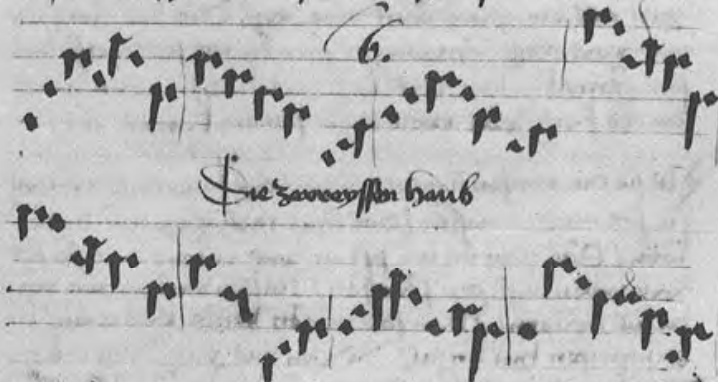 6.
Die zerreyssen haub